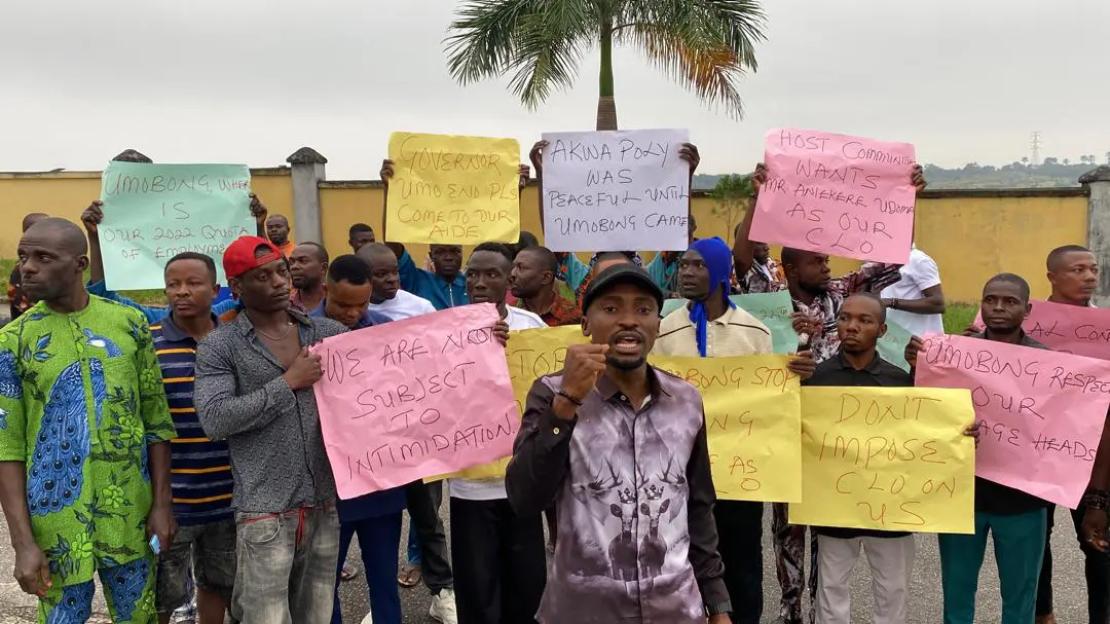 UMOBONG, WHERE
IS
OUR 2022 QUOTA
OF EMPLOYME
GOVERNOR
UMO ENO PLS
COME TO OUR
AIDE
AKWA POLY
WAS
PEACEFUL UNTIL
UMOBONG CAME
HOST COMMUNITY
WANTS
MR ANIEKERE UDOM
AS OUR
CLO
WE ARE NOT
SUBJECT
TO
INTIMIDATION.
BONG STOP
NG
AS
O
DON'T
IMPOSE
CLO ON
US
UMOBONG RESPEC
OUR
AGE HEADS
AL CON